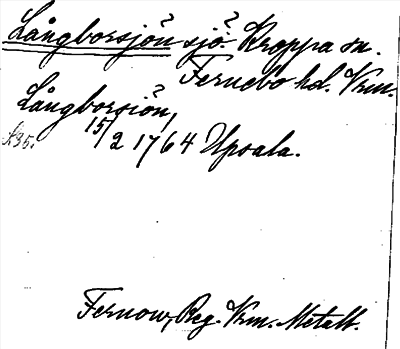 Långborsjön sjö? Kroppa sn.
Fernebo hd. Vrm.
Långborsiön,
s. 35. 15/2 1764 Upsala.
Fernow, Reg. Vrm. Metall.